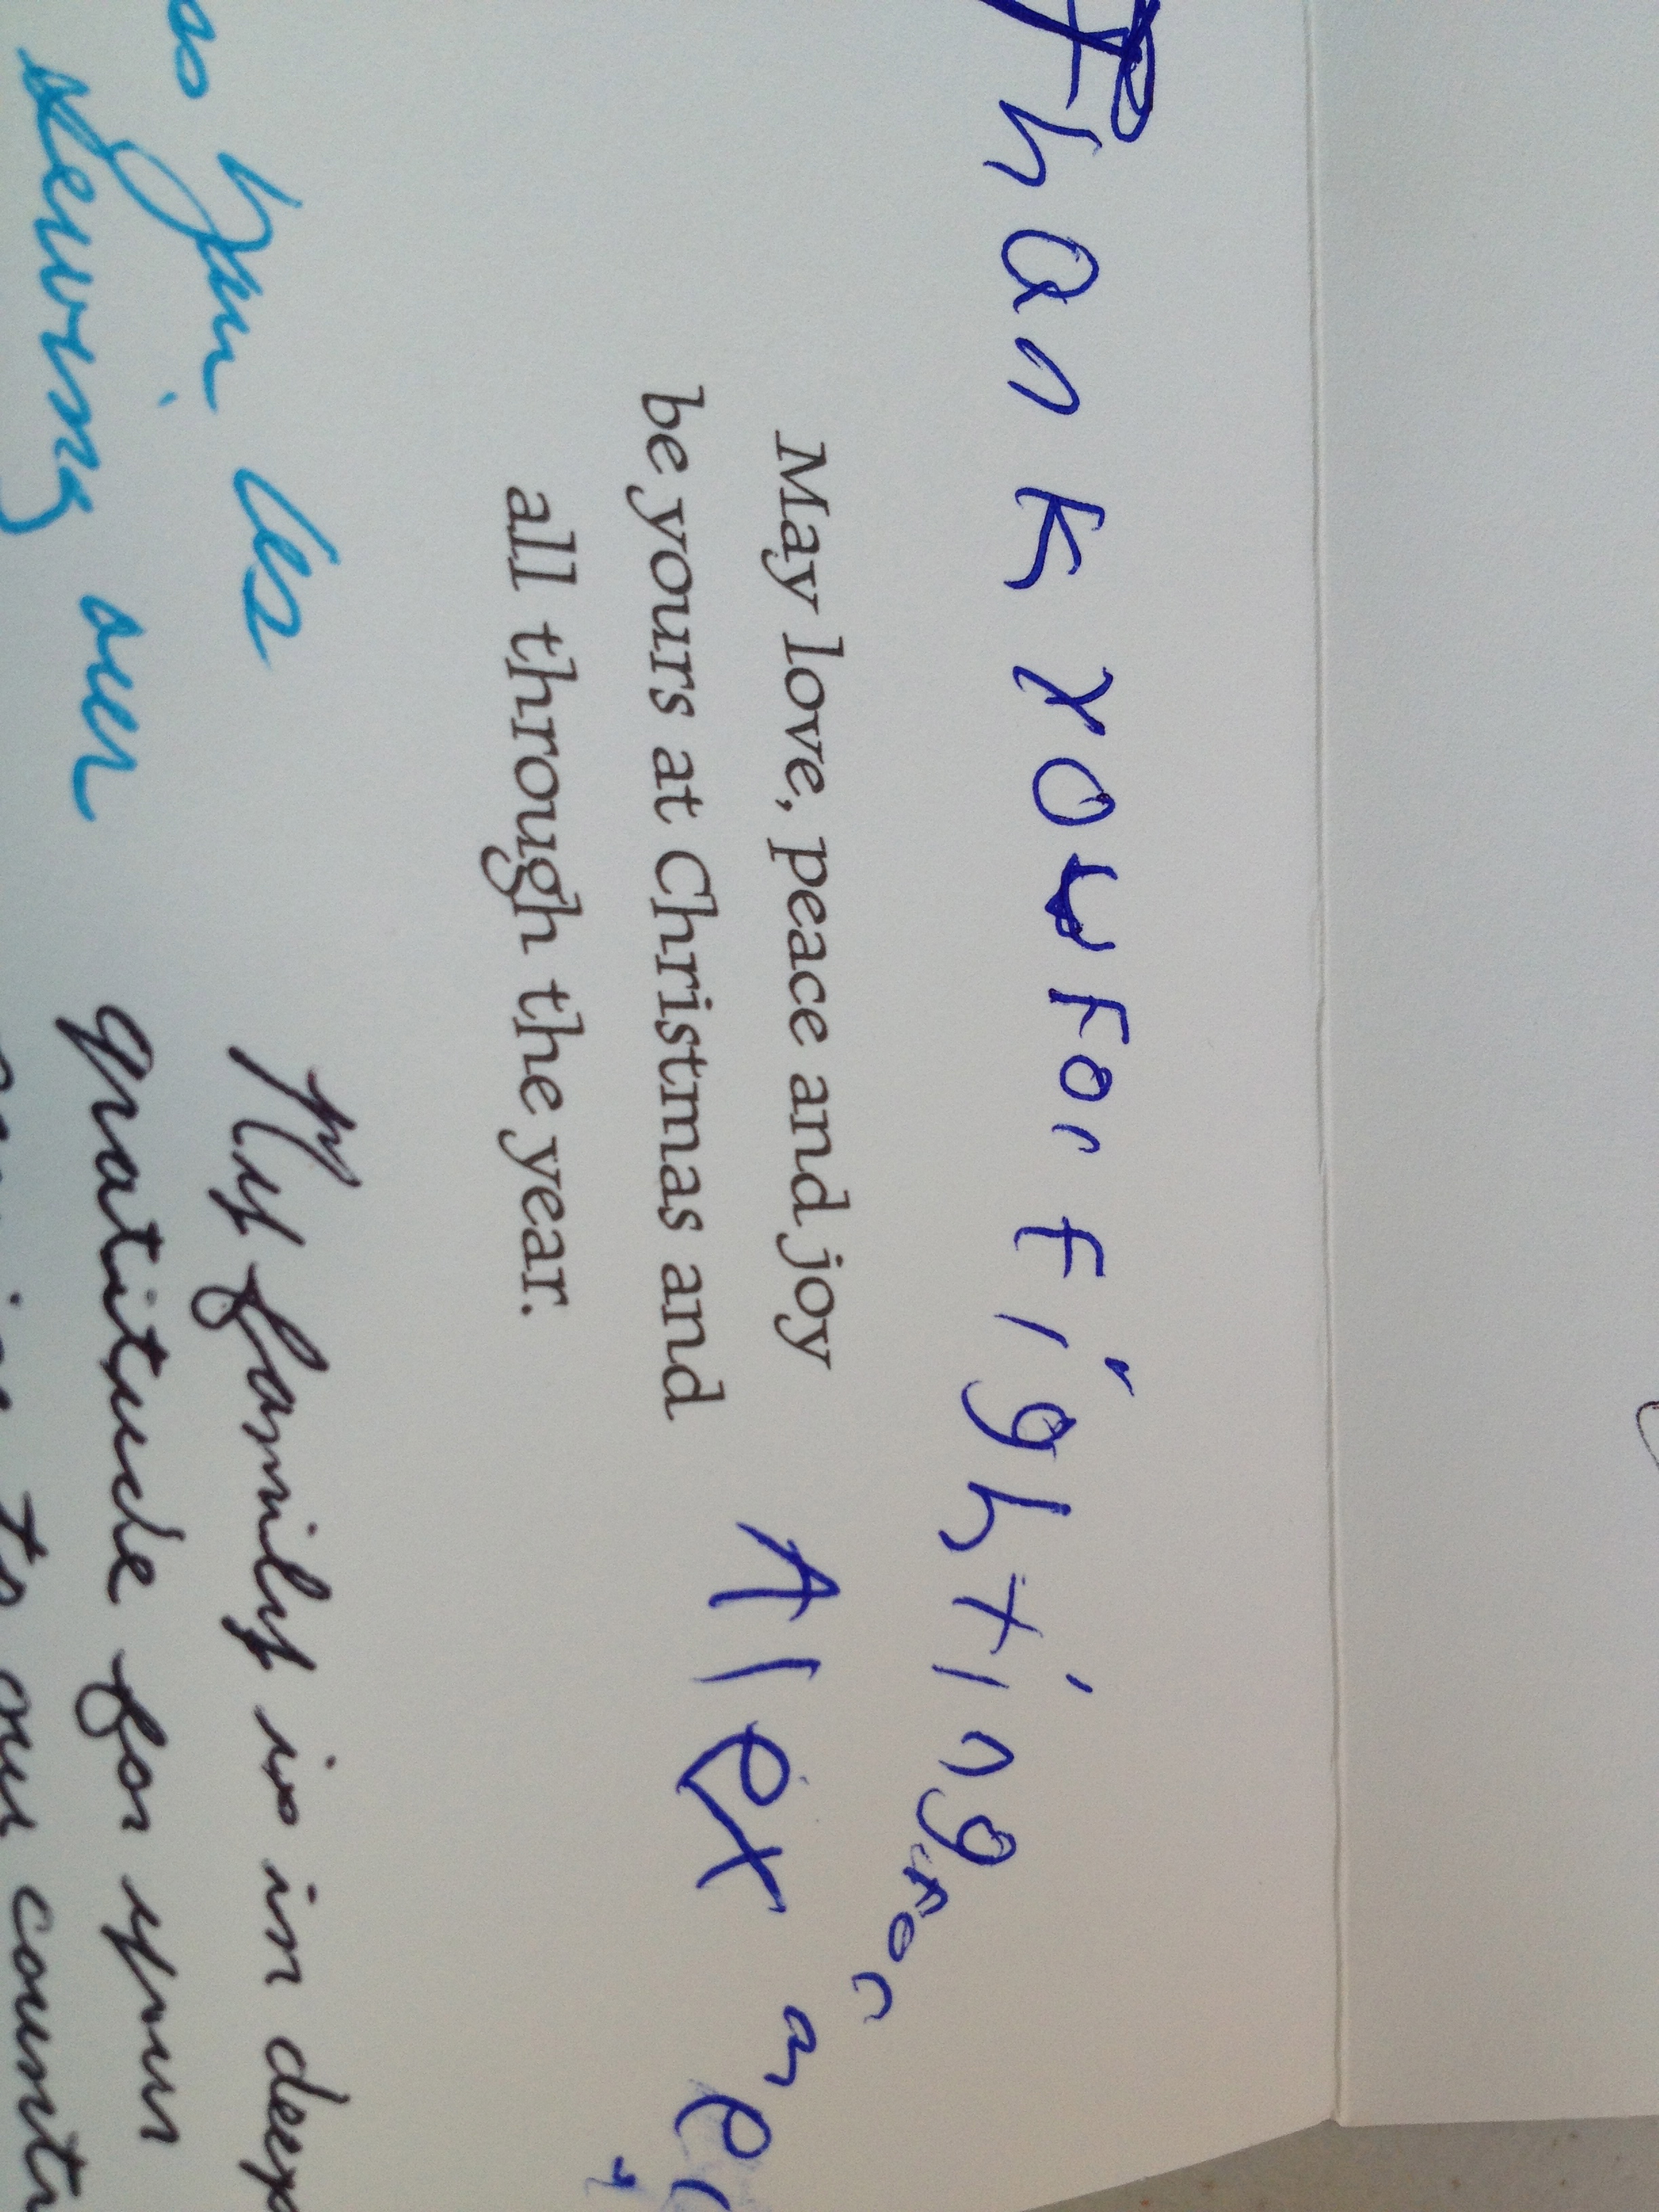 Thank you For fighting For
Alex
May love, peace and joy
be yours at Christmas and
all through the year.
serving our
My family is in deep
gratitude for your
to our